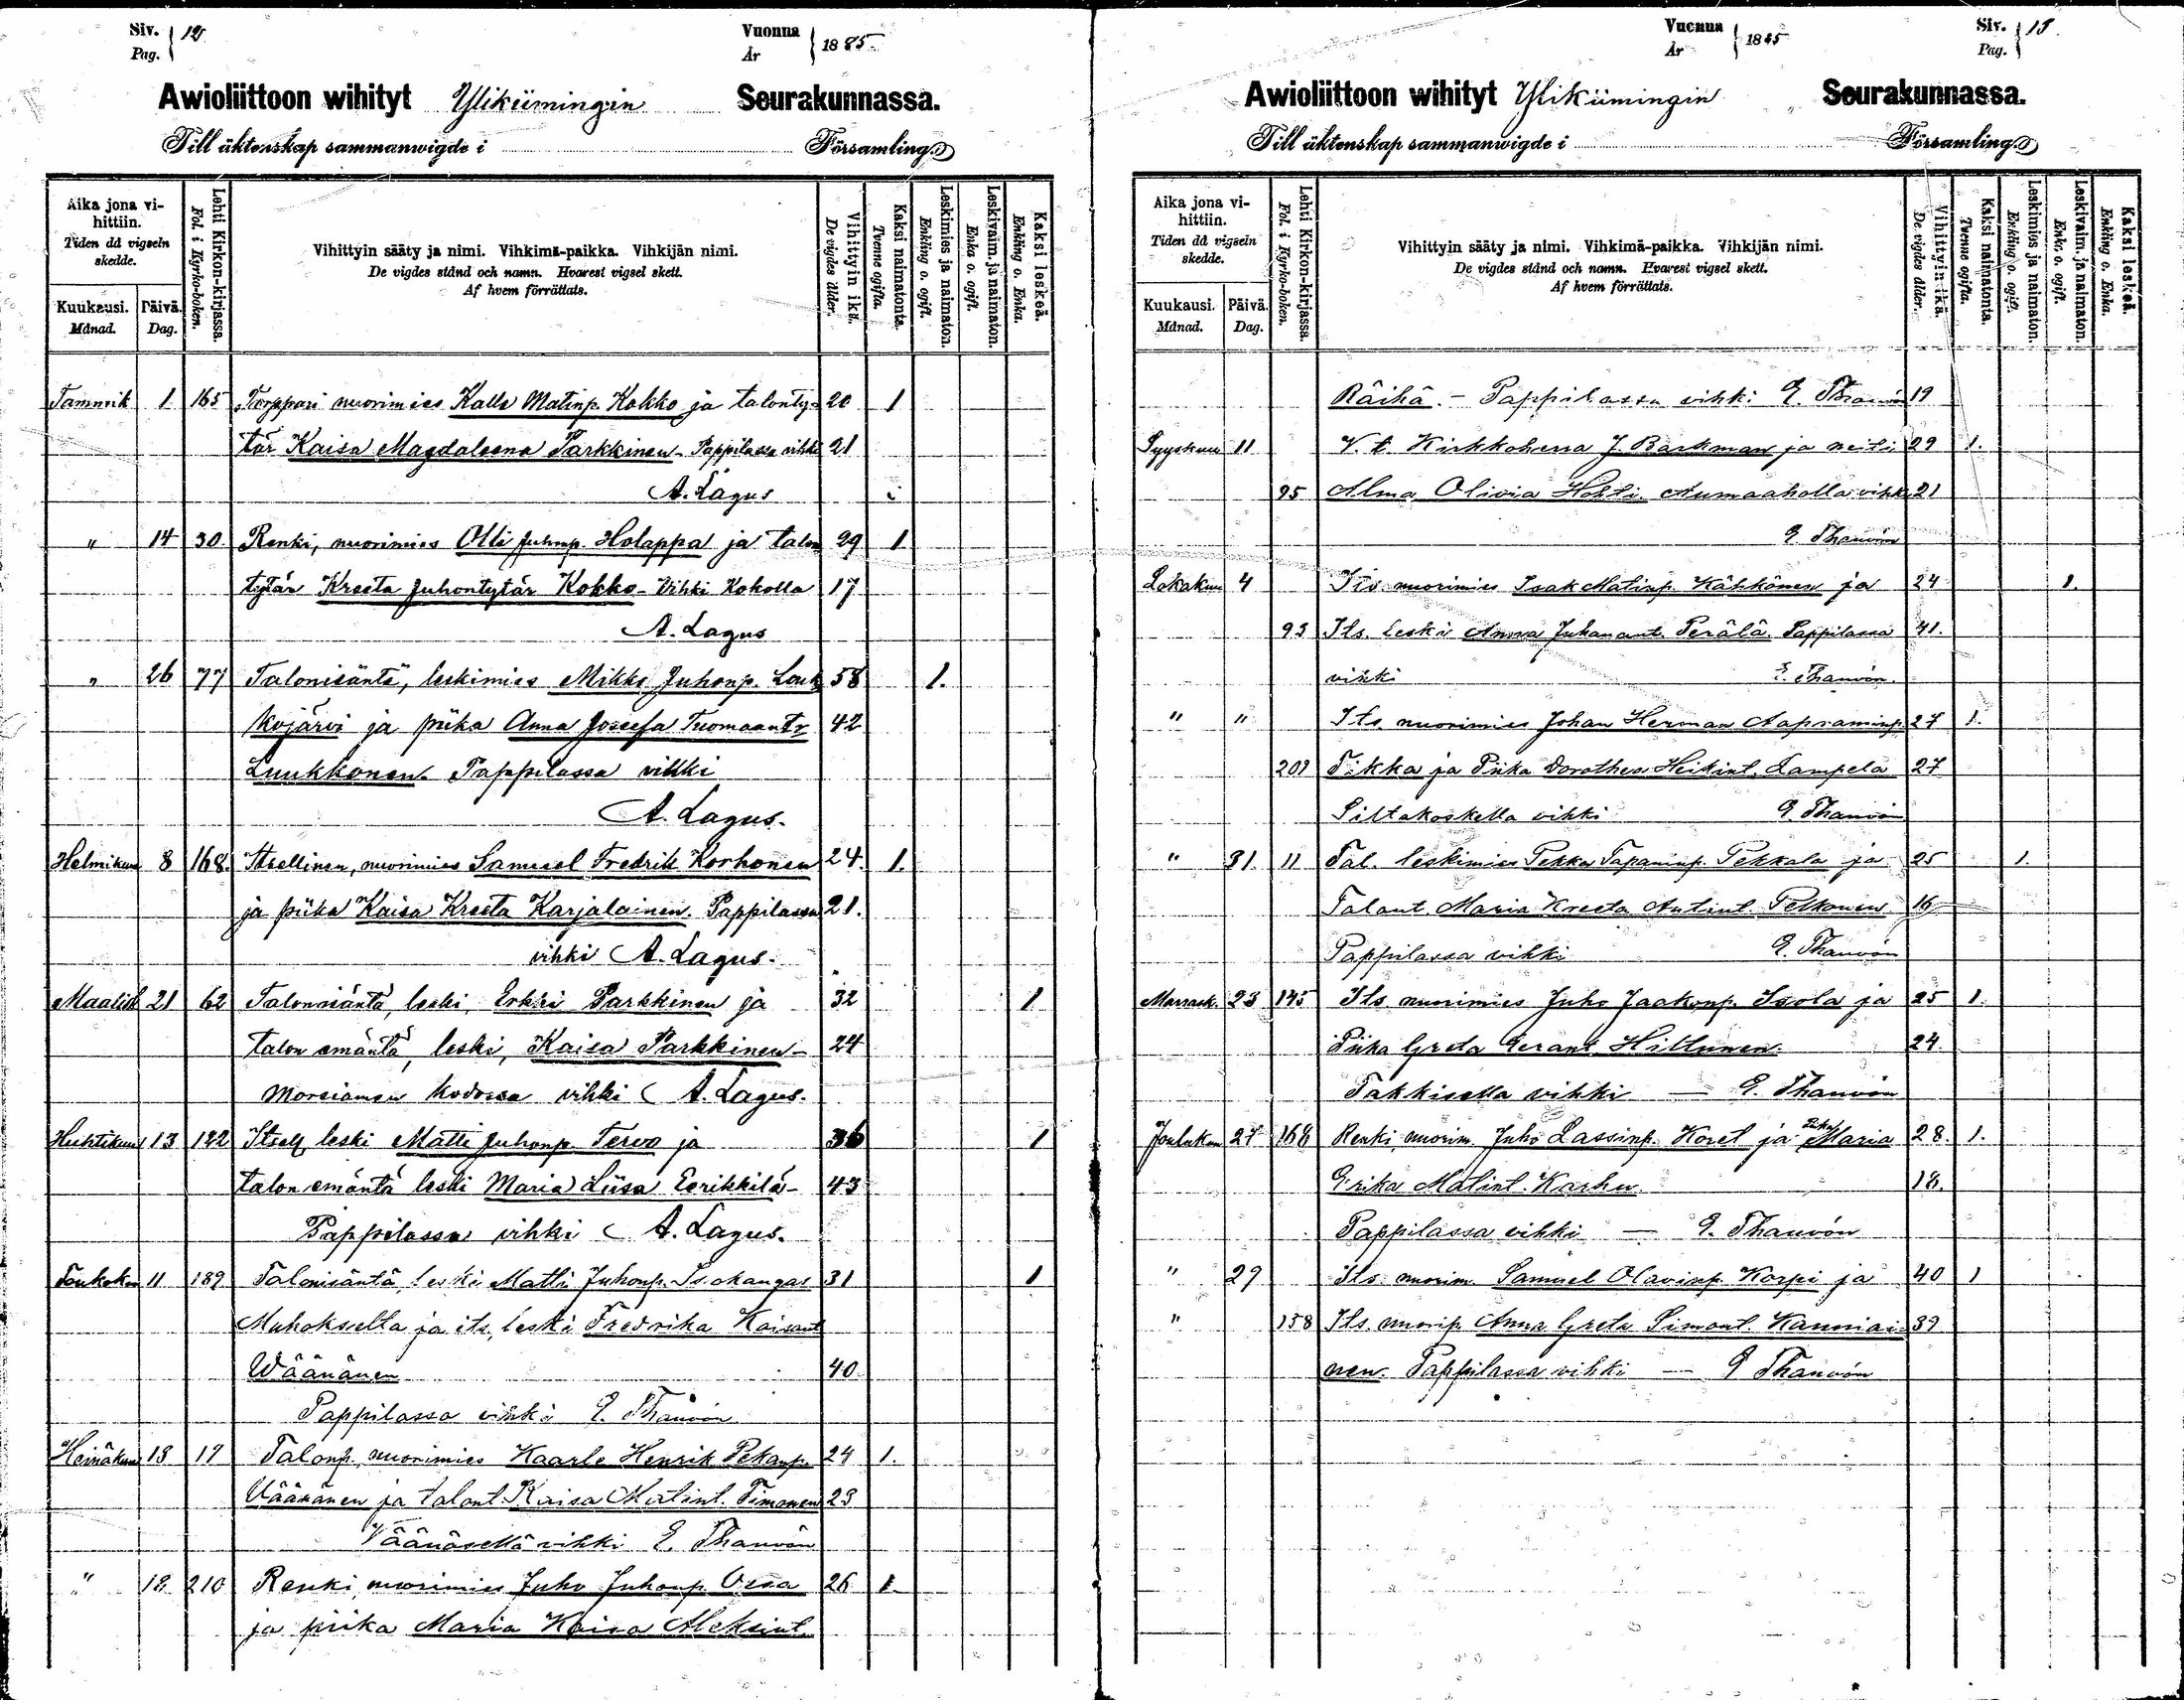 Siv. Pag. 12
Vuonna År 1885.
Awioliittoon wihityt Ylikiimingin Seurakunnassa.
Till äktenskap sammanwigde i Församling.
Aika jona vihittiin.
Tiden då vigseln skedde.
Kuukausi. Månad.
Päivä. Dag.
Lehti Kirkon-kirjassa.
Fol. i Kyrko-boken.
Vihittyin sääty ja nimi. Vihkimä-paikka. Vihkijän nimi.
De vigdes stånd och namn. Hvarest vigsel skett.
Af hvem förrättats.
Vihittyin ikä.
De vigdes ålder.
Kaksi naimatonta.
Tvenne ogifta.
Leskimies ja naimaton.
Enkling o. ogift.
Leskivaim. ja naimaton.
Enka o. ogift.
Kaksi leskeä.
Enkling o. Enka.
Tammik 1 165 Torppari nuorimies Kalle Matinp. Kokko ja talonty- 20 1
tär Kaisa Magdaleena Parkkinen - Pappilassa vihki 21
A. Lagus
" 14 30. Renki, nuorimies Olli Juhonp. Holappa ja talon 29 1
tytär Kreeta Juhontytär Kokko - Vihki Kokolla 17
A. Lagus
" 26 77 Talonisäntä, leskimies Mikko Juhonp. Louk 58 1.
kojärvi ja piika Anna Josefa Tuomaantr 42
Luukkonen. Pappilassa vihki
A. Lagus.
Helmikuu 8 168. Itsellinen, nuorimies Samuel Fredrik Korhonen 24. 1.
ja piika Kaisa Kreeta Karjalainen. Pappilassa 21.
vihki A. Lagus.
Maalisk 21 62 Talonisäntä, leski, Erkki Parkkinen ja 32 1
talon emäntä, leski, Kaisa Parkkinen - 24
Morsiamen kodossa vihki A. Lagus.
Huhtikuu 13 122 Itsell leski Matti Juhonp. Tervo ja 36 1
talon emäntä leski Maria Liisa Eerikkilä - 43
Pappilassa vihki A. Lagus.
Toukokuu 11 189 Talonisäntä, leski Matti Juhonp. Isokangas 31 1
Muhokselta ja its. leski Fredrika Kaisant
Wäänänen 40
Pappilassa vihki E. Thauvón
Heinäkuu 13 17 Talonp. nuorimies Kaarle Henrik Pekanp. 24 1.
Väänänen ja talont. Kaisa Matint. Timonen 23
Väänäsellä vihki E. Thauvón
" 18. 210 Renki nuorimies Juho Juhonp. 26 1
ja piika Maria Kaisa Aleksint.
Vuonna År 1885
Siv. Pag. 13
Awioliittoon wihityt Ylikiimingin Seurakunnassa.
Till äktenskap sammanwigde i Församling.
Aika jona vihittiin.
Tiden då vigseln skedde.
Kuukausi. Månad.
Päivä. Dag.
Lehti Kirkon-kirjassa.
Fol. i Kyrko-boken.
Vihittyin sääty ja nimi. Vihkimä-paikka. Vihkijän nimi.
De vigdes stånd och namn. Hvarest vigsel skett.
Af hvem förrättats.
Vihittyin ikä.
De vigdes ålder.
Kaksi naimatonta.
Tvenne ogifta.
Leskimies ja naimaton.
Enkling o. ogift.
Leskivaim. ja naimaton.
Enka o. ogift.
Kaksi leskeä.
Enkling o. Enka.
Räihä. - Pappilassa vihki E. Thauvón 19
Syyskuu 11 V. t. Kirkkoherra J. Barkman ja neiti 29 1.
95 Alma Olivia Hohti. vihki 21
E. Thauvón
Lokakuu 4 Its. nuorimies Isak Matinp. Kähkönen ja 24 1.
93 Its. leski Anna Juhanant. Perälä. Pappilassa 41.
vihki E. Thauvón.
" " Its. nuorimies Johan Herman Aapraminp. 27 1.
209 Tikka ja Piika Dorothea Heikint. Lampela 27
Siltakoskella vihki E. Thauvón
" 31. 11 Tal. leskimies Pekka Tapaninp. Pekkala ja 25 1.
Talont. Maria Kreeta Antint. Pelkonen 16
Pappilassa vihki E. Thauvón
Marrask. 23 145 Its nuorimies Juho Jaakonp. Isola ja 25 1.
Piika Greta Hiltunen. 24.
Takkisella vihki — E. Thauvón
Joulukuu 27 168 Renki, nuorim. Juho Lassinp. Koret ja Piika Maria 28. 1.
Erika Matint. Karhu. 18.
Pappilassa vihki — E. Thauvón
" 29 Its. nuorim. Samuel Olavinp. Korpi ja 40 1
" 158 Its. nuorip. Anna Greta Simont. Kanniai- 39
nen. Pappilassa vihki — E Thauvón